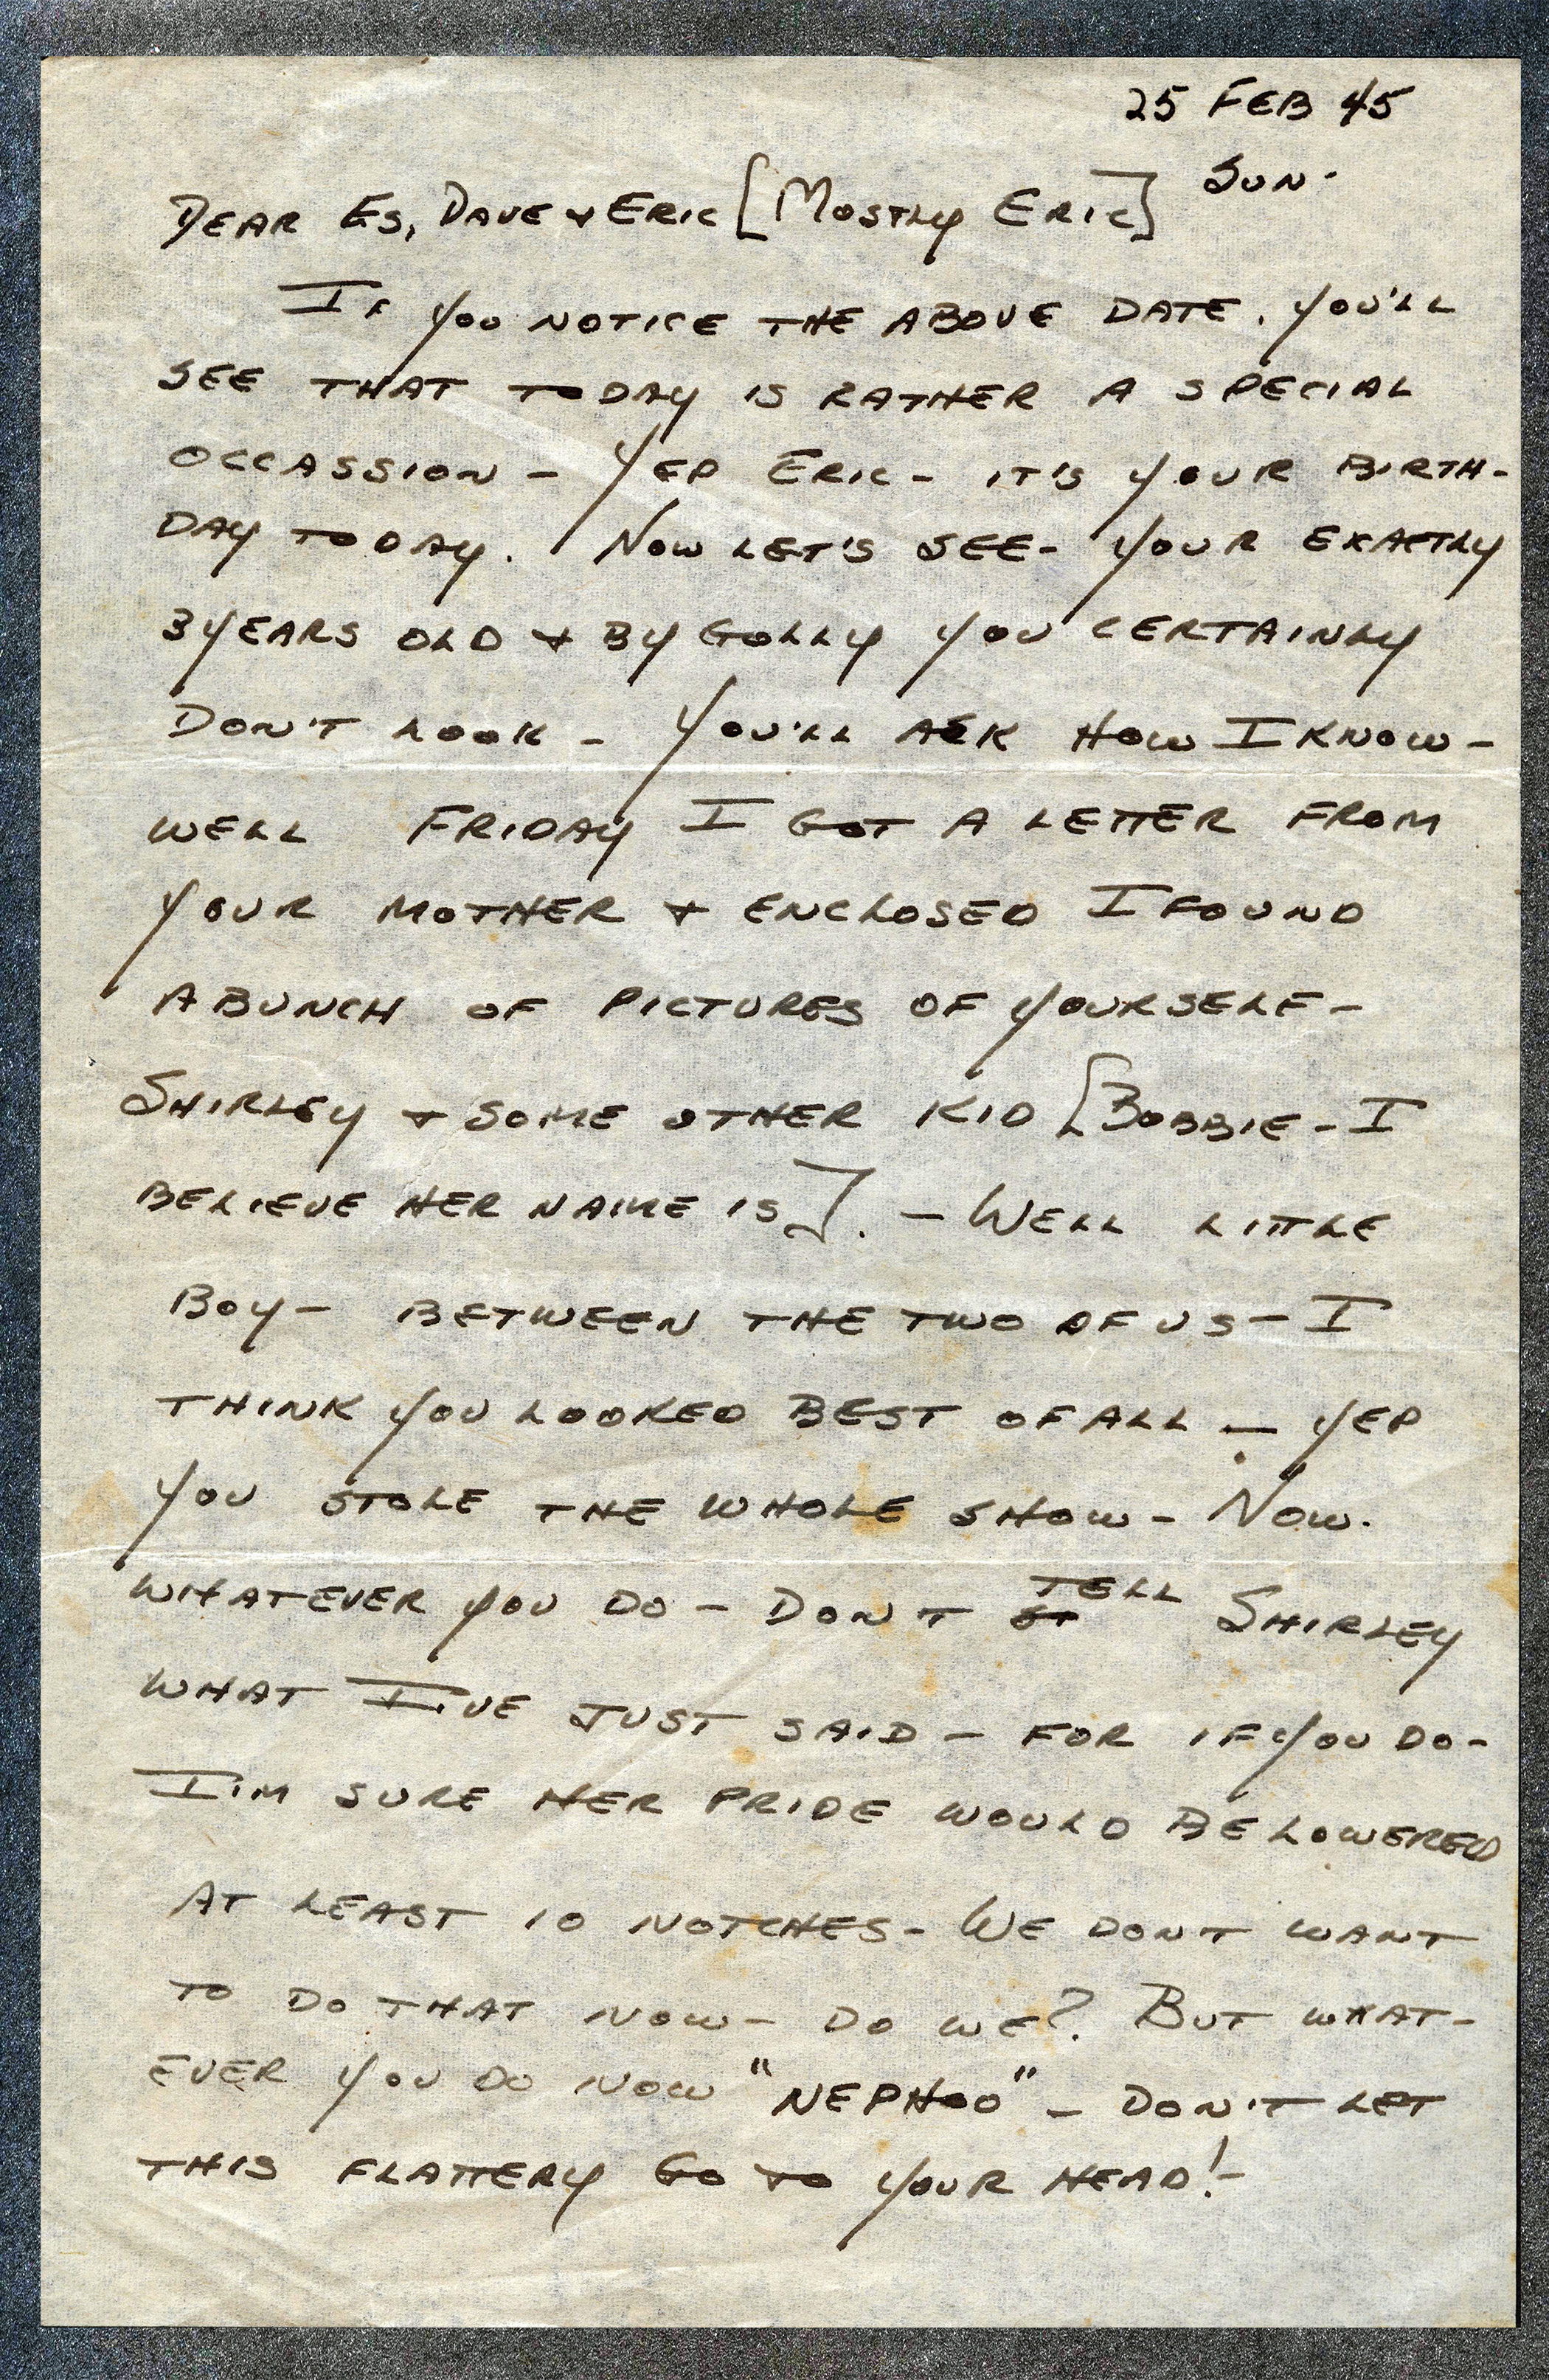 25 FEB 45
SUN.
DEAR ES, DAVE & ERIC [MOSTLY ERIC]
IF YOU NOTICE THE ABOVE DATE, YOU'LL
SEE THAT TODAY IS RATHER A SPECIAL
OCCASSION - YEP ERIC - IT'S YOUR BIRTH-
DAY TODAY. NOW LET'S SEE - YOUR EXACTLY
3 YEARS OLD & BY GOLLY YOU CERTAINLY
DON'T LOOK - YOU'LL ASK HOW I KNOW -
WELL FRIDAY I GOT A LETTER FROM
YOUR MOTHER & ENCLOSED I FOUND
A BUNCH OF PICTURES OF YOURSELF -
SHIRLEY & SOME OTHER KID [BOBBIE - I
BELIEVE HER NAME IS]. - WELL LITTLE
BOY - BETWEEN THE TWO OF US - I
THINK YOU LOOKED BEST OF ALL - YEP
YOU STOLE THE WHOLE SHOW - NOW.
WHATEVER YOU DO - DON'T TELL SHIRLEY
WHAT I'VE JUST SAID - FOR IF YOU DO -
I'M SURE HER PRIDE WOULD BE LOWERED
AT LEAST 10 NOTCHES - WE DONT WANT
TO DO THAT NOW - DO WE? BUT WHAT-
EVER YOU DO NOW "NEPHOO" - DON'T LET
THIS FLATTERY GO TO YOUR HEAD! -